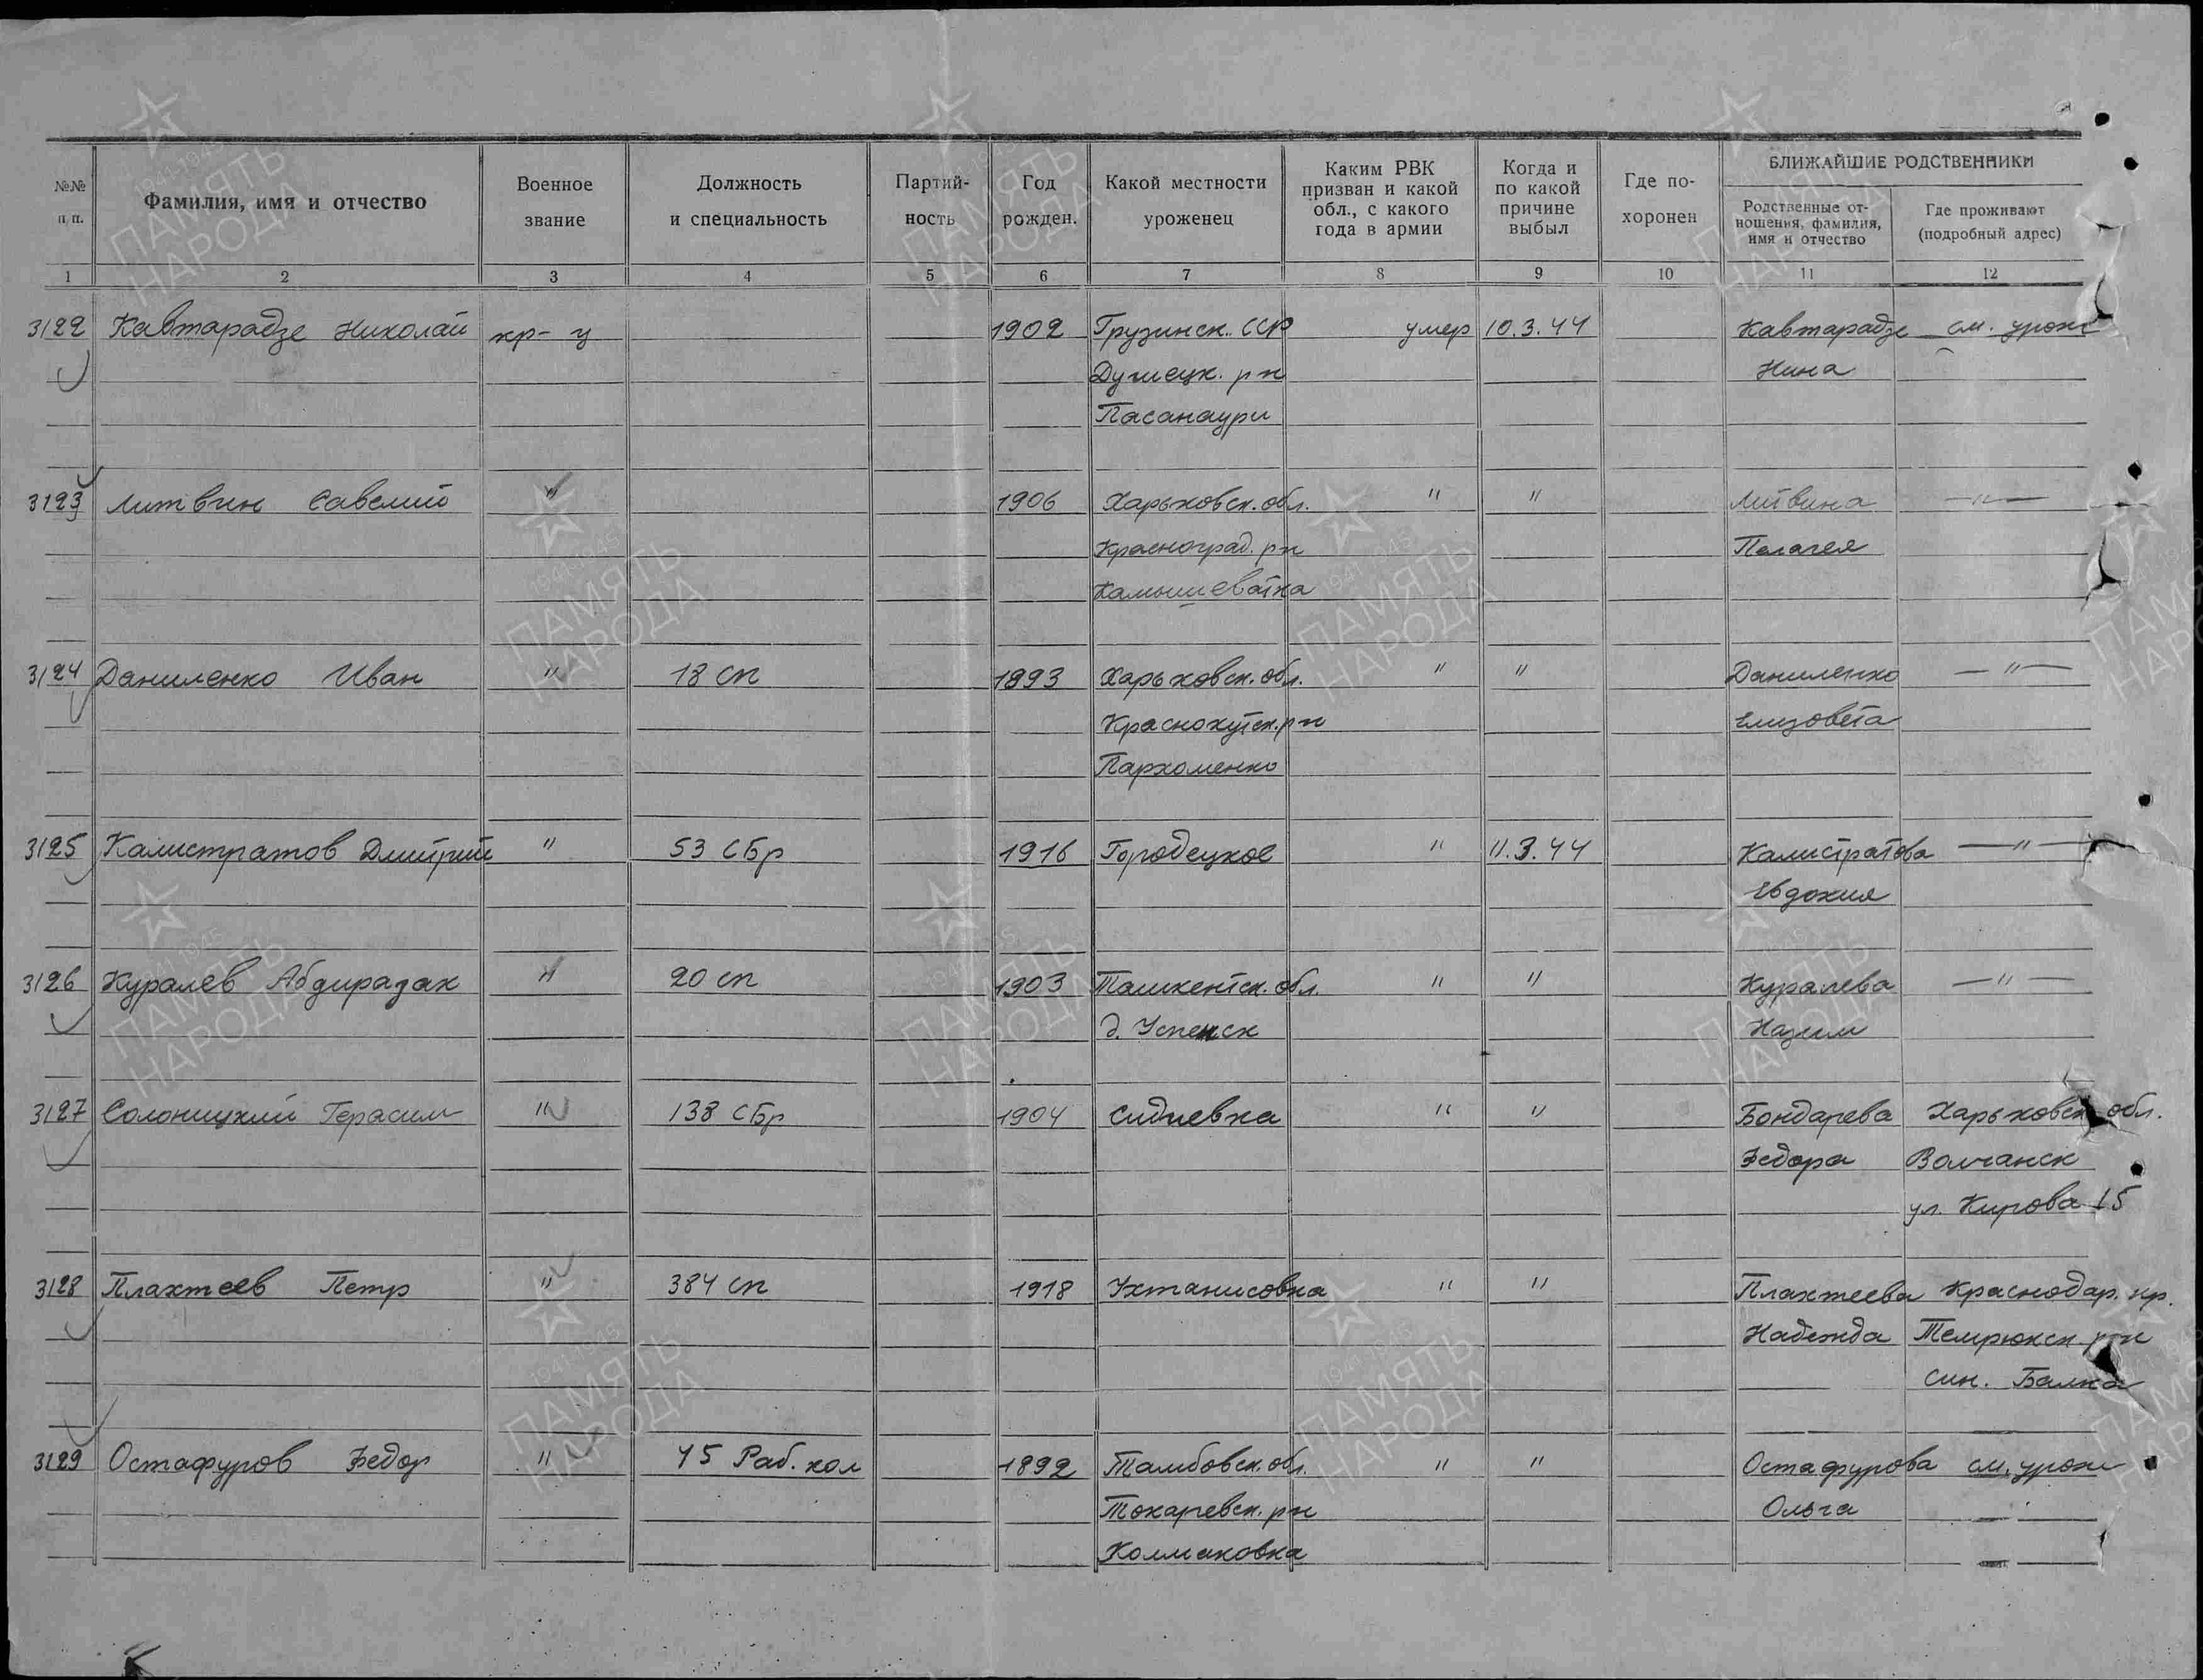 №№ п/п.
Фамилия, имя и отчество
Военное звание
Должность и специальность
Партий-ность
Год рожден.
Какой местности уроженец
Каким РВК призван и какой обл., с какого года в армии
Когда и по какой причине выбыл
Где по-хоронен
БЛИЖАЙШИЕ РОДСТВЕННИКИ
Родственные от-ношения, фамилия, имя и отчество
Где проживают (подробный адрес)
1 2 3 4 5 6 7 8 9 10 11 12
3122 Кавтарадзе Николай кр-ц 1902 Грузинск. ССР умер 10.3.44 Кавтарадзе см. урож
Душецк. р-н Нина
Пасанаури
3123 Литвин Савелий " 1906 Харьковск. обл. " " Литвина —"—
Красноград. р-н Пелагея
Камышеватка
3124 Даниленко Иван " 18 сп 1893 Харьковск. обл. " " Даниленко —"—
Краснокутск. р-н Елизовета
Пархоменко
3125 Калистратов Дмитрий " 53 СБр 1916 Городецкое " 11.3.44 Калистратова —"—
Евдокия
3126 Куралев Абдирадак " 20 сп 1903 Ташкентск. обл. " " Куралева —"—
д. Успенск Назим
3127 Солоницкий Герасим " 138 СБр 1904 Сидневка " " Бондарева Харьковск обл.
Федора Волчанск
ул. Кирова 15
3128 Плахтеев Петр " 384 сп 1918 Ухтанисовка " " Плахтеева Краснодар. кр.
Надежда Темрюкск р-н
син. Балка
3129 Остафуров Федор " 45 Раб. кол 1892 Тамбовск. обл. " " Остафурова см. урож
Токаревск. р-н Ольга
Колмаковка
1941-1945
ПАМЯТЬ
НАРОДА